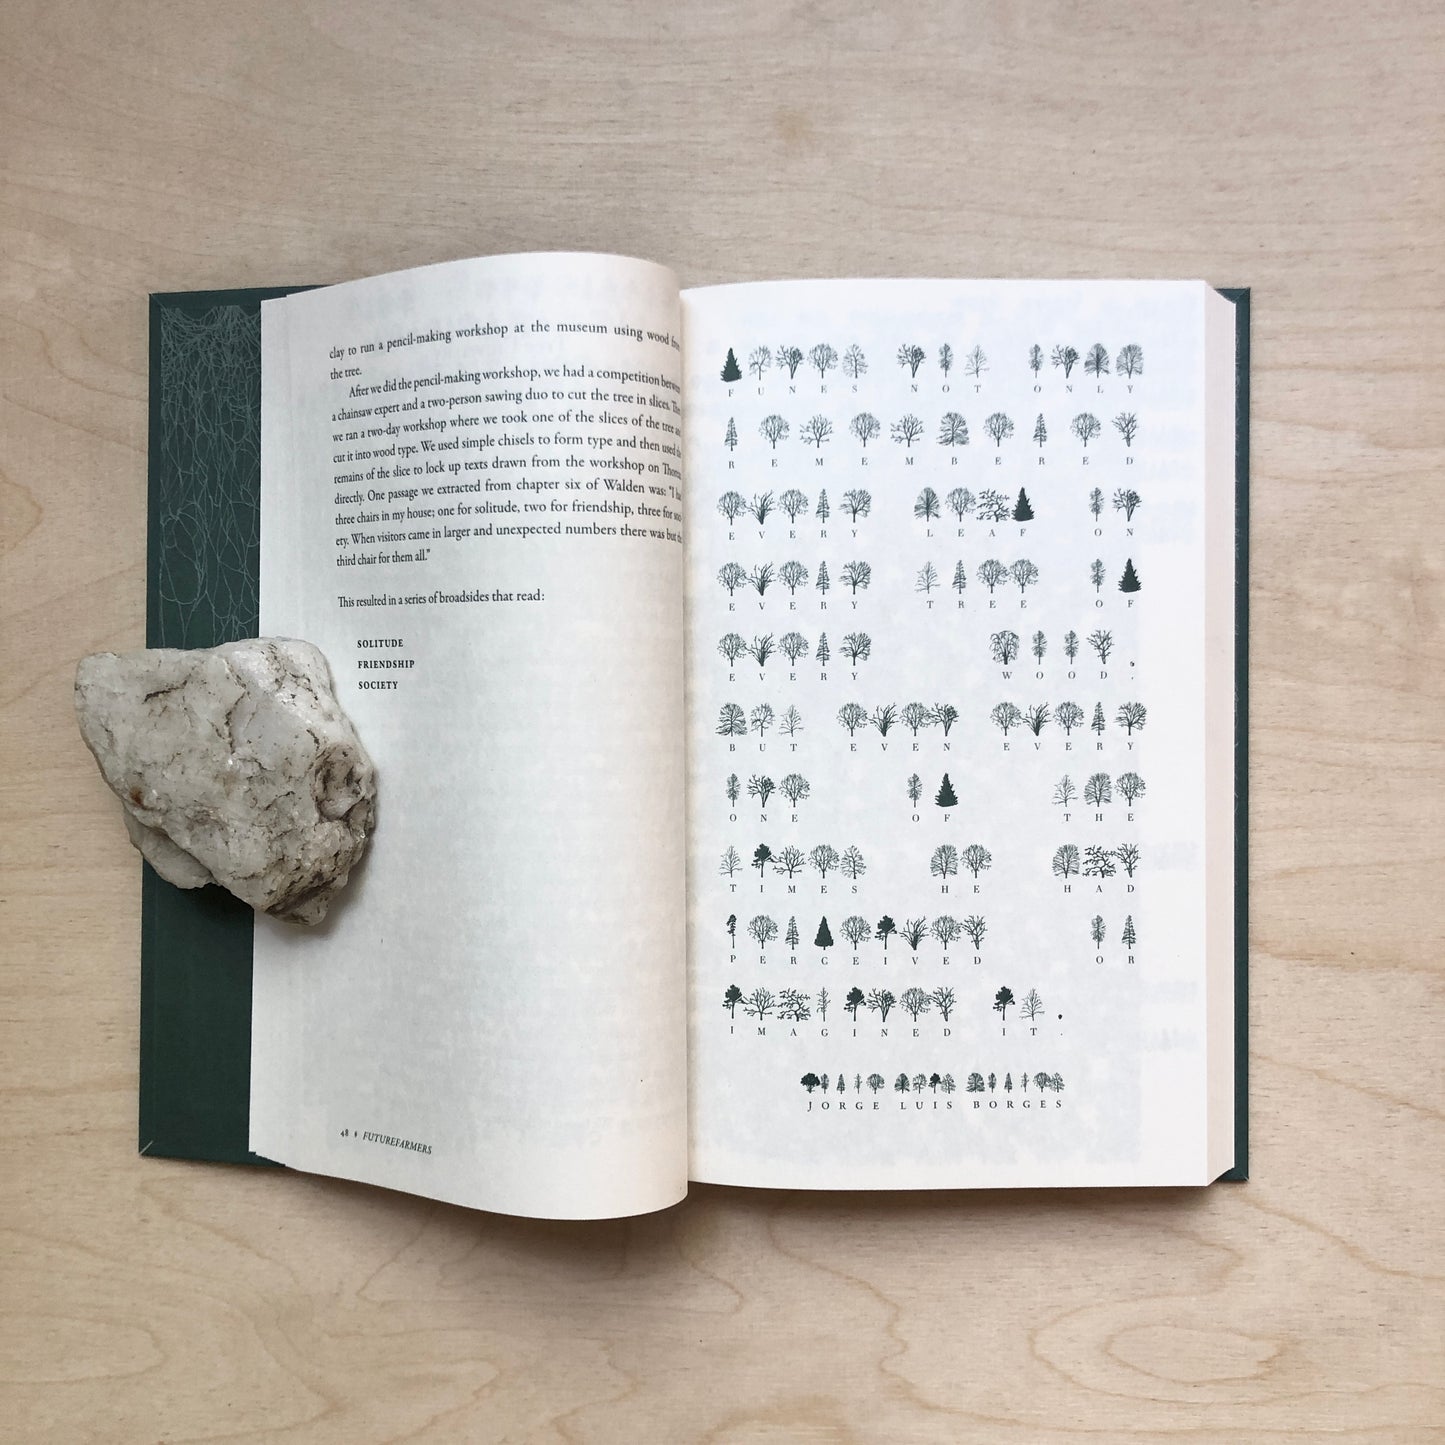 clay to run a pencil-making workshop at the museum using wood
the tree.
After we did the pencil-making workshop, we had a competition
a chainsaw expert and a two-person sawing duo to cut the tree in slices.
we ran a two-day workshop where we took one of the slices of the tree
cut it into wood type. We used simple chisels to form type and then used
remains of the slice to lock up texts drawn from the workshop on
directly. One passage we extracted from chapter six of Walden was: "I
three chairs in my house; one for solitude, two for friendship, three for
ety. When visitors came in larger and unexpected numbers there was but
third chair for them all."
This resulted in a series of broadsides that read:
SOLITUDE
FRIENDSHIP
SOCIETY
48 FUTUREFARMERS
FUNES NOT ONLY
REMEMBERED
EVERY LEAF ON
EVERY TREE OF
EVERY WOOD,
BUT EVEN EVERY
ONE OF THE
TIMES HE HAD
PERCEIVED OR
IMAGINED IT.
JORGE LUIS BORGES